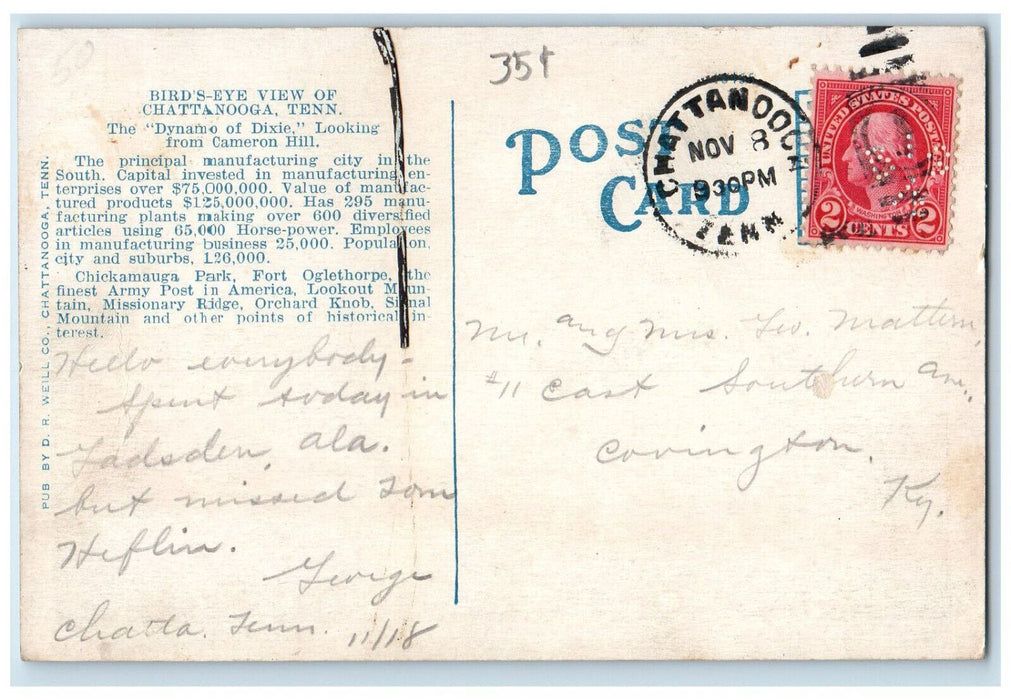 50
35¢
BIRD'S-EYE VIEW OF
CHATTANOOGA, TENN.
The "Dynamo of Dixie," Looking
from Cameron Hill.
The principal manufacturing city in the
South. Capital invested in manufacturing en-
terprises over $75,000,000. Value of manufac-
tured products $125,000,000. Has 295 manu-
facturing plants making over 600 diversified
articles using 65,000 Horse-power. Employees
in manufacturing business 25,000. Population,
city and suburbs, 126,000.
Chickamauga Park, Fort Oglethorpe, the
finest Army Post in America, Lookout Moun-
tain, Missionary Ridge, Orchard Knob, Signal
Mountain and other points of historical in-
terest.
PUB BY D. R. WEILL CO., CHATTANOOGA, TENN.
Hello everybody-
Spent today in
Gadsden, Ala.
but missed Tom
Heflin.
George
Chatta. Tenn. 11/18
POST
CARD
CHATTANOOGA
NOV 8
930PM
TENN.
UNITED STATES POSTAGE
WASHINGTON
2 CENTS 2
Mr. and Mrs. Geo. Mattern,
#11 East Southern Ave.
Covington,
Ky.